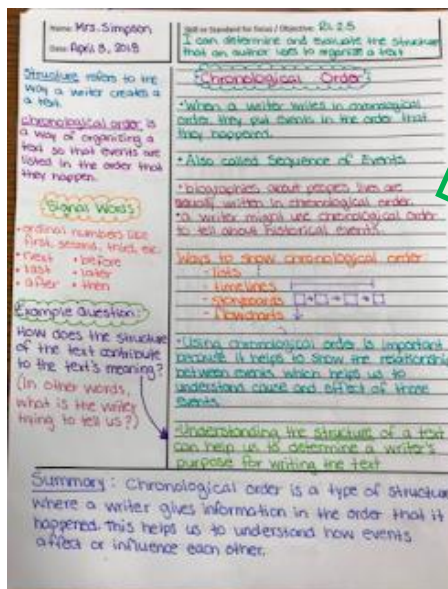 Name: Mrs. Simpson
Date: April 8, 2018
Skill or Standard for Focus / Objective: RI.2.5
I can determine and evaluate the structure
that an author uses to organize a text
Structure refers to the
way a writer creates a
a text.
chronological order is
a way of organizing a
text so that events are
listed in the order that
they happen.
Signal Words
• ordinal numbers like
first, second, third, etc.
• next • before
• last • later
• after • then
Example Question:
How does the structure
of the text contribute
to the text's meaning?
(In other words,
what is the writer
trying to tell us?)
Chronological Order
• When a writer writes in chronological
order, they put events in the order that
they happened.
• Also called Sequence of Events
• biographies about people's lives are
usually written in chronological order.
• a writer might use chronological order
to tell about historical events.
Ways to show chronological order:
- lists
- timelines
- storyboards
- flowcharts
• Using chronological order is important
because it helps to show the relationship
between events which helps us to
understand cause and effect of those
events.
• Understanding the structure of a text
can help us to determine a writer's
purpose for writing the text
Summary: Chronological order is a type of structure
where a writer gives information in the order that it
happened. This helps us to understand how events
affect or influence each other.